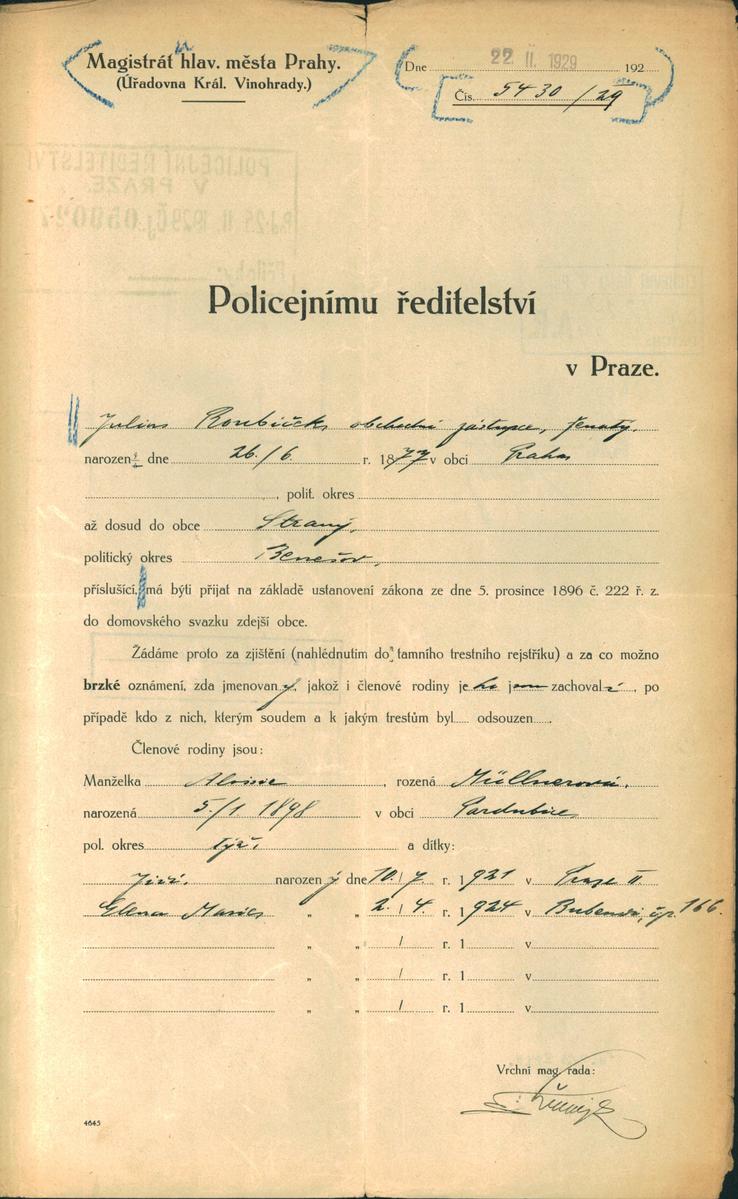 Magistrát hlav. města Prahy.
(Úřadovna Král. Vinohrady.)
Dne 22 II. 1929 192
Čís. 5430/29
POLICEJNÍ ŘEDITELSTVÍ
V PRAZE
Policejnímu ředitelství
v Praze.
Julius Roubíček obchodní zástupce, ženatý.
narozen dne 26./6. r. 1877 v obci Praha
, polit. okres
až dosud do obce Straný,
politický okres Benešov,
příslušící, má býti přijat na základě ustanovení zákona ze dne 5. prosince 1896 č. 222 ř. z.
do domovského svazku zdejší obce.
Žádáme proto za zjištění (nahlédnutim do tamního trestního rejstříku) a za co možno
brzké oznámení, zda jmenovaný, jakož i členové rodiny je zachovalí, po
případě kdo z nich, kterým soudem a k jakým trestům byl odsouzen
Členové rodiny jsou:
Manželka Aloisie, rozená Müllnerová.
narozená 5./1. 1898 v obci Pardubice
pol. okres týž. a dítky:
Jiří. narozený dne 10./7. r. 1921 v Praze II.
Elena Marie „ „ 2./4. r. 1924 v Bubenči, čp. 166.
„ „ / r. 1 v
„ „ / r. 1 v
„ „ / r. 1 v
Vrchní mag. rada:
4645